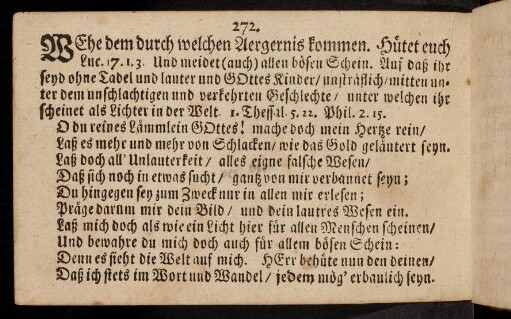 272.
WEhe dem durch welchen Aergernis kommen. Hütet euch
Luc. 17. 1. 3. Und meidet (auch) allen bösen Schein. Auf daß ihr
seyd ohne Tadel und lauter und GOttes Kinder / unsträflich / mitten un-
ter dem unschlachtigen und verkehrten Geschlechte / unter welchen ihr
scheinet als Lichter in der Welt. 1. Thessal. 5. 22. Phil. 2. 15.
O du reines Lämmlein GOttes! mache doch mein Hertze rein /
Laß es mehr und mehr von Schlacken / wie das Gold geläutert seyn.
Laß doch all' Unlauterkeit / alles eigne falsche Wesen /
Daß sich noch in etwas sucht / gantz von mir verbannet seyn;
Du hingegen sey zum Zweck nur in allen mir erlesen;
Präge darum mir dein Bild / und dein lautres Wesen ein.
Laß mich doch als wie ein Licht hier für allen Menschen scheinen /
Und bewahre du mich doch auch für allem bösen Schein:
Denn es sieht die Welt auf mich. HErr behüte nun den deinen /
Daß ich stets im Wort und Wandel / jedem mög' erbaulich seyn.